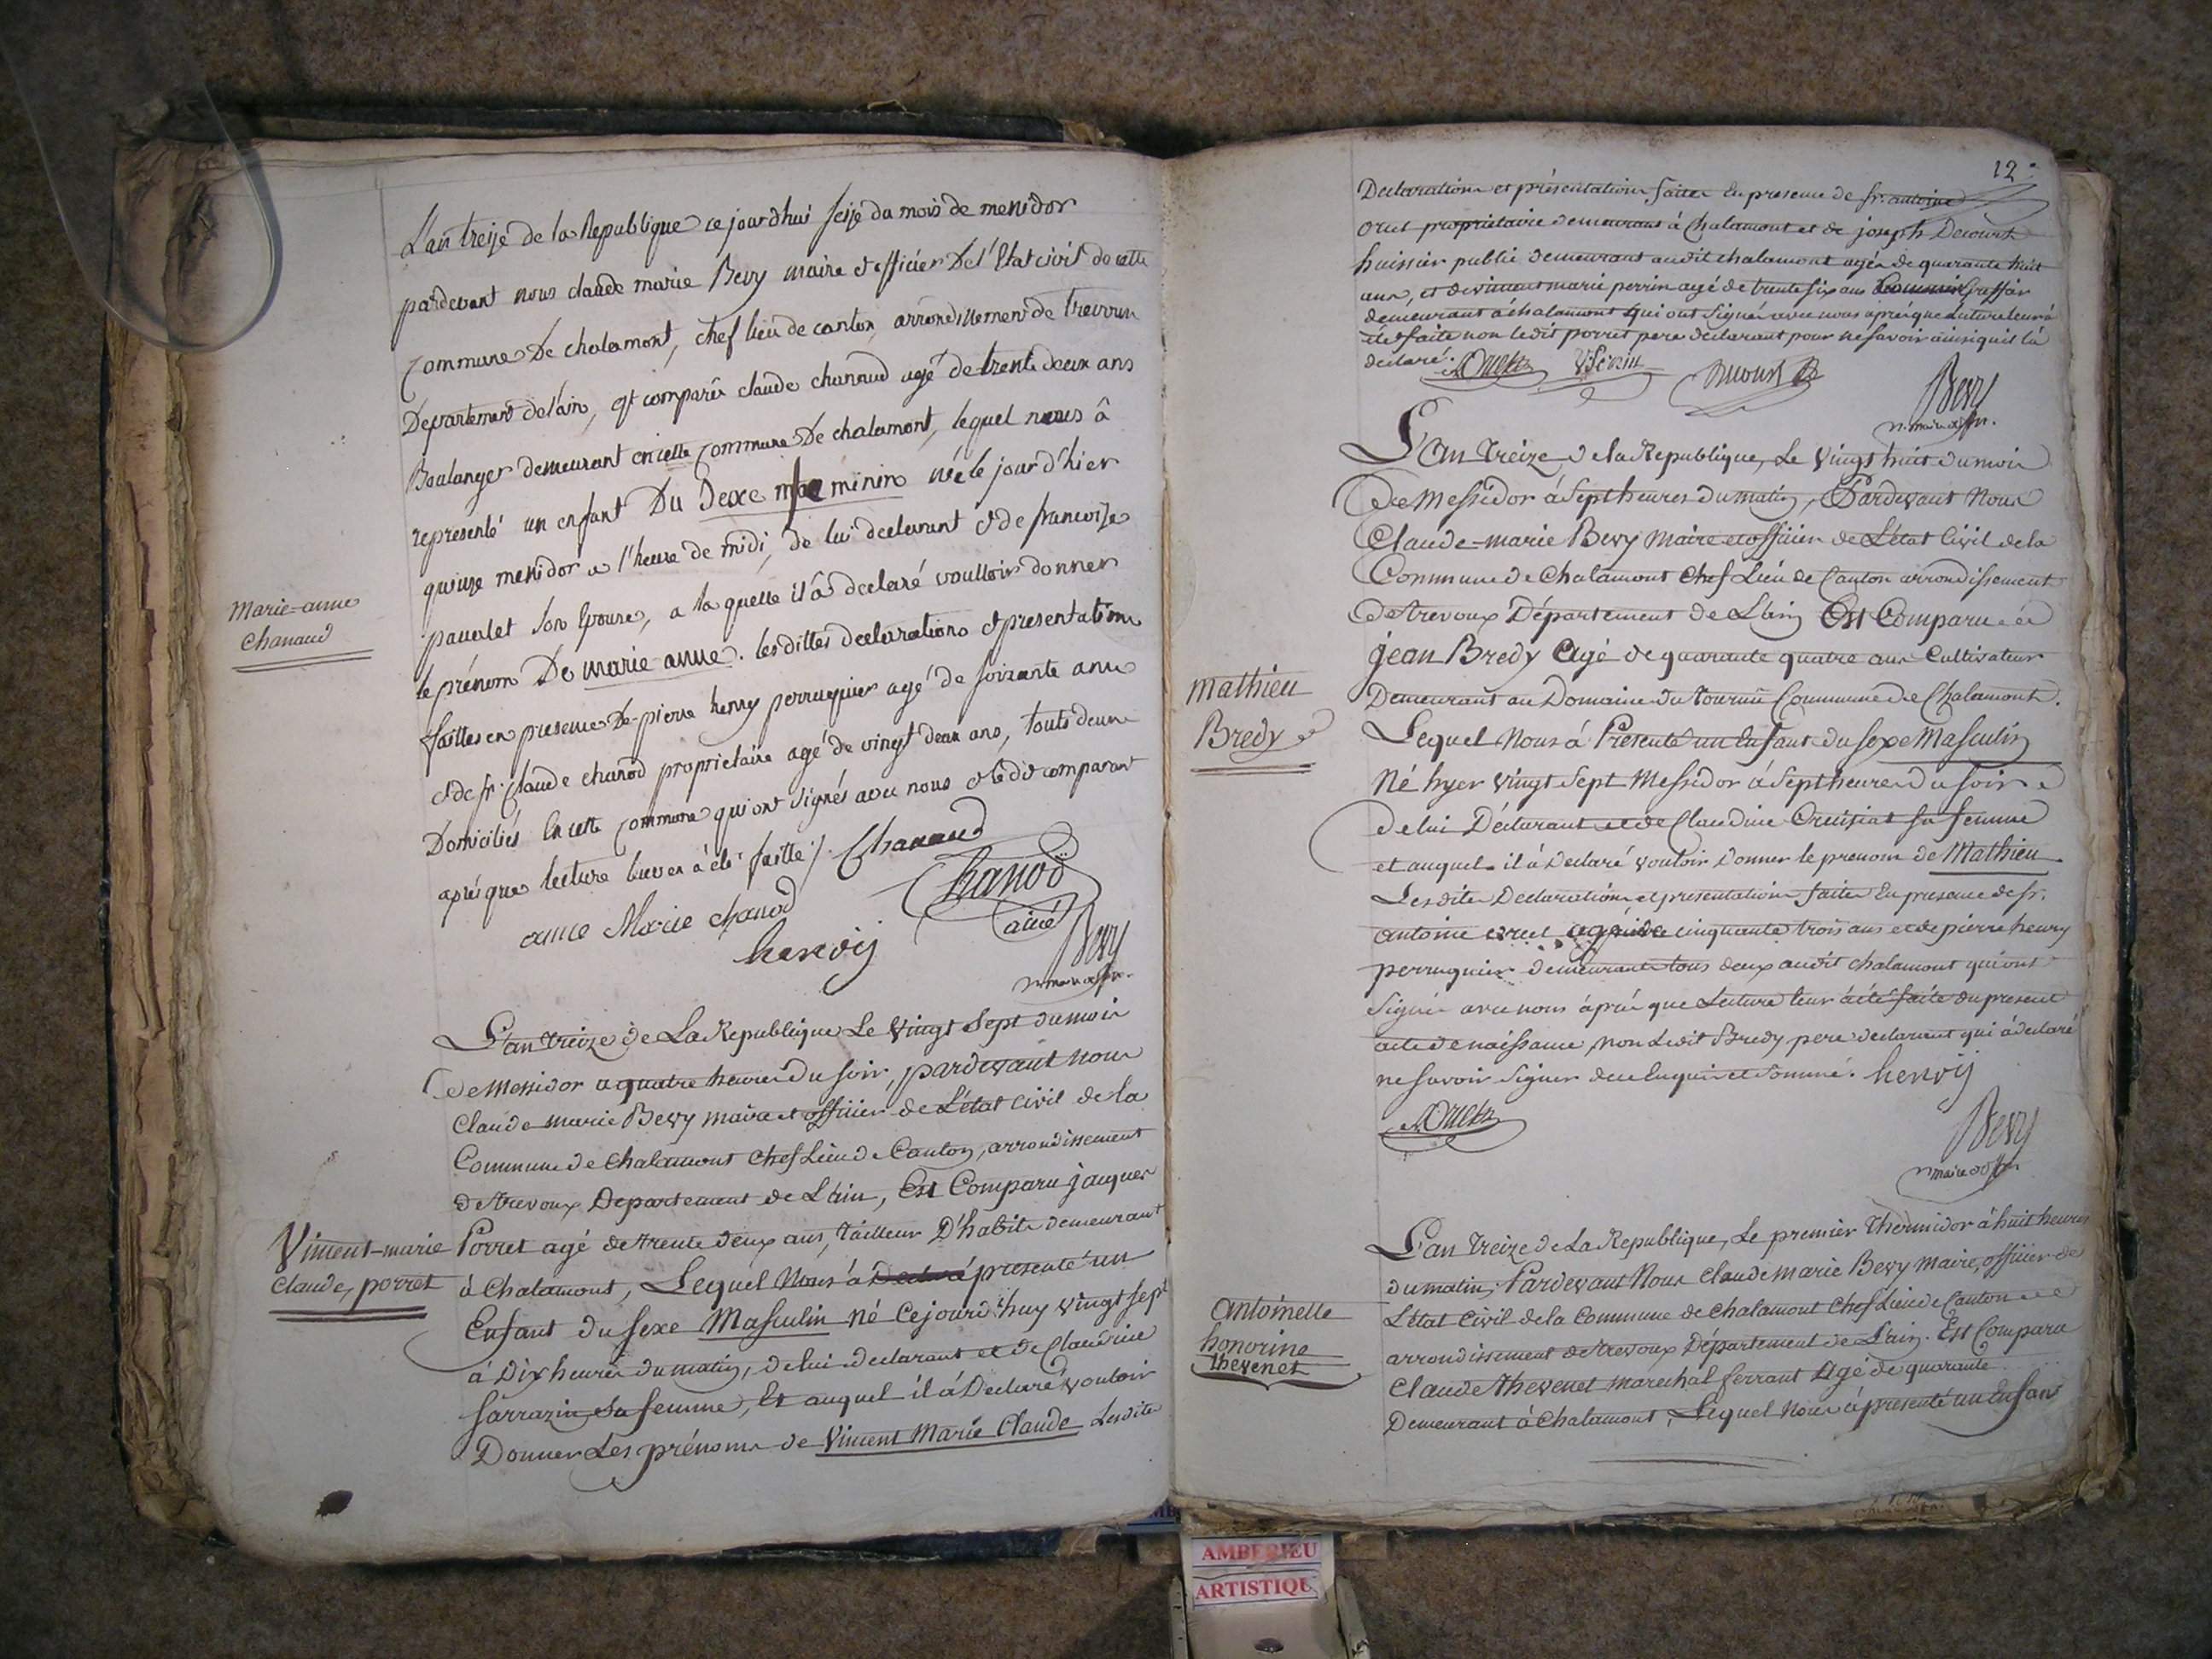 L'an treize de la Republique ce jourd'hui seize du mois de messidor
pardevant nous claude marie Bevy maire et officier De l'Etat civil de cette
Commune De chalamont, chef lieu de canton, arrondissement de trevoux
Departement de l'ain, est comparu claude channud agé de trente deux ans
Boulanger demeurant en cette Commune De chalamont, lequel nous â
representé un enfant Du Sexe minin née le jour d'hier
quinze messidor a l'heure de midi, de lui declarant et de francoise
son Epouse, a laquelle il â declaré voulloir donner
le prénom De marie-anne. les dittes declarations et presentations
faittes en presence De pierre henry perruquier agé de soixante ans
et de sr. Claude chanod proprietaire agé de vingt deux ans, touts deux
Domiciliés En cette Commune qui ont signés avec nous et le dit comparant
aprés que lecture luer a été faitte /. Chanaud
Marie-anne
Chanaud
anne Marie chanod
Chanod
ainé
henrÿ
Bevy
L'an treize de La Republique Le Vingt Sept du mois
de Messidor a quatre heures du soir, pardevant nous
Claude marie Bevy maire et officier de L'état civil de la
Commune de Chalamont Chef Lieu de Canton, arrondissement
de trevoux Departement de L'ain, Est Comparu jacques
Vincent-marie
Claude, porret
Porret agé de trente deux ans, tailleur D'habits demeurant
à Chalamont, Lequel Nous à presenté un
Enfant du sexe Masculin né Cejourd'huy vingt sept
à Dix heures du matin, de lui declarant et de Claudine
sarrazin sa femme, Et auquel il à Declaré vouloir
Donner Les prénoms de Vincent Marie Claude Lesdites
12.
Declarations et présentation faites En presence de sr. antoine
Oruet proprietaire demeurant à Chalamont et de joseph Decourt
huissier public demeurant audit chalamont agés de quarante huit
ans, et de vincent marie perrin agé de trente six ans Greffier
demeurant à chalamont qui ont signés avec nous aprés que lecture leur à
été faite non ledit porret pere declarant pour ne savoir ainsi qu'il l'à
declaré.
Bevy
L'An treize de la Republique, Le Vingt huit du mois
de Messidor à Sept heures du matin, Pardevant Nous
Claude-marie Bevy Maire et officier de L'état Civil de la
Commune de Chalamont Chef Lieu de Canton arrondissement
de trevoux Département de L'ain Est Comparu
jean Bredy Agé de quarante quatre ans Cultivateur
Demeurant au Domaine du Commune de Chalamont.
Mathieu
Bredy
Lequel Nous à Présenté un Enfant du sexe Masculin
Né hyer vingt Sept Messidor à Sept heures du soir
de lui Déclarant et de Claudine sa femme
et auquel il à Declaré vouloir Donner le prenom de Mathieu
Lesdites Declaration et presentation faites En presence de sr.
antoine oruet agé de cinquante trois ans et de pierre henry
perruquier demeurants tous deux audit chalamont qui ont
signés avec nous aprés que Lecture leur à été faite du present
acte de naissance, non Ledit Bredy pere declarant qui à declaré
ne savoir signer de ce Enquis et sommé. henrÿ
Bevy
L'an treize de La Republique, Le premier Thermidor à huit heures
du matin, Pardevant Nous Claude Marie Bevy maire, officier de
L'état Civil de la Commune de Chalamont Chef Lieu de Canton
Antoinette
honorine
thevenet
arrondissement de trevoux Département de L'ain. Est Comparu
Claude thevenet marechal ferrant Agé de quarante
Demeurant à Chalamont, Lequel Nous à presenté un Enfant
AMBERIEU
ARTISTIQUE